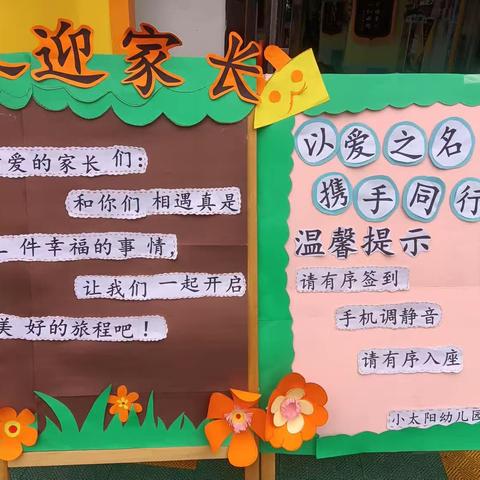 迎家长
爱的家长们:
和你们相遇真是
件幸福的事情,
让我们一起开启
美好的旅程吧!
以爱之名
携手同行
温馨提示
请有序签到
手机调静音
请有序入座
小太阳幼儿园